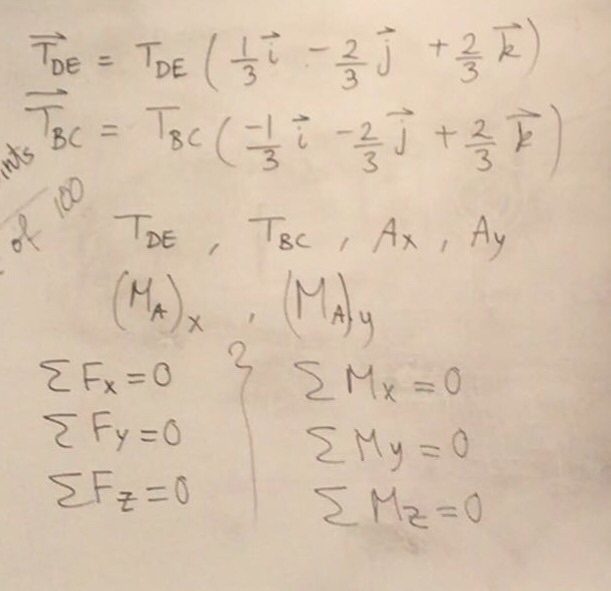 T⃗DE = TDE ( 1/3 i⃗ - 2/3 j⃗ + 2/3 k⃗ )
T⃗BC = TBC ( -1/3 i⃗ - 2/3 j⃗ + 2/3 k⃗ )
of 100
TDE , TBC , Ax , Ay
(MA)x , (MA)y
ΣFx = 0
ΣFy = 0
ΣFz = 0
ΣMx = 0
ΣMy = 0
ΣMz = 0